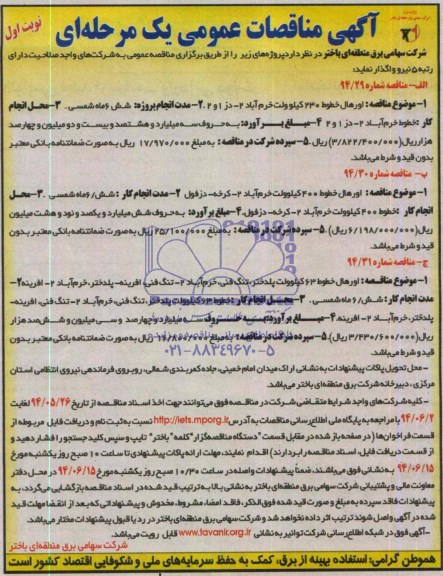 آگهی مناقصات عمومی یک مرحله‌ای
نوبت اول
شرکت سهامی برق منطقه‌ای باختر در نظر دارد پروژه‌های زیر را از طریق برگزاری مناقصه عمومی به شرکت‌های واجد صلاحیت دارای
رتبه ۵ نیرو واگذار نماید:
الف- مناقصه شماره ۹۴/۲۹
۱- موضوع مناقصه: اورهال خطوط ۲۳۰ کیلوولت خرم‌آباد ۲- دز ۱ و ۲ ۲- مدت انجام پروژه: شش ۶ ماه شمسی ۳- محل انجام
کار: خطوط خرم‌آباد ۲- دز ۱ و ۲ ۴- مبلغ برآورد: به حروف سه میلیارد و هشتصد و بیست و دو میلیون و چهارصد
هزار ریال (۳/۸۲۲/۴۰۰/۰۰۰) ریال ۵- سپرده شرکت در مناقصه: به مبلغ ۱۷/۹۷۰/۰۰۰ ریال به صورت ضمانتنامه بانکی معتبر
بدون قید و شرط می‌باشد.
ب- مناقصه شماره ۹۴/۳۰
۱- موضوع مناقصه: اورهال خطوط ۴۰۰ کیلوولت خرم‌آباد ۲- کرخه- دزفول ۲- مدت انجام کار: شش/۶ ماه شمسی ۳- محل
انجام کار: خطوط ۴۰۰ کیلوولت خرم‌آباد ۲- کرخه- دزفول ۴- مبلغ برآورد: به حروف شش میلیارد و یکصد و نود و هشت میلیون
ریال (۶/۱۹۸/۰۰۰/۰۰۰) ریال ۵- سپرده شرکت در مناقصه: به مبلغ ۲۵/۱۰۰/۰۰۰ ریال به صورت ضمانتنامه بانکی معتبر بدون
قید و شرط می‌باشد.
ج- مناقصه شماره ۹۴/۳۱
۱- موضوع مناقصه: اورهال خطوط ۶۳ کیلوولت پلدختر- تنگ فنی، خرم‌آباد ۲- تنگ فنی، افرینه- پلدختر، خرم‌آباد ۲- افرینه ۲-
مدت انجام کار: شش/۶ ماه شمسی ۳- محل انجام کار: خطوط ۶۳ کیلوولت پلدختر- تنگ فنی، خرم‌آباد ۲- تنگ فنی، افرینه-
پلدختر، خرم‌آباد ۲- افرینه ۴- مبلغ برآورد: میلیارد و چهارصد و سی میلیون و شش‌صد هزار
ریال ۵- سپرده شرکت در مناقصه: به مبلغ ریال به صورت ضمانتنامه بانکی معتبر بدون
قید و شرط می‌باشد.
۰۲۱-۸۸۳۴۹۶۷۰-۵
- محل تحویل پاکات پیشنهادات به نشانی اراک میدان امام خمینی، جاده کمربندی شمالی، روبروی فرماندهی نیروی انتظامی استان
مرکزی، دبیرخانه شرکت برق منطقه‌ای باختر می‌باشد.
- کلیه شرکت‌های واجد شرایط متقاضی شرکت در مناقصه فوق می‌توانند جهت اخذ اسناد مناقصه از تاریخ ۹۴/۰۵/۲۶ لغایت
۹۴/۰۶/۲ با مراجعه به پایگاه ملی اطلاع‌رسانی مناقصات به آدرس http://iets.mporg.ir نسبت به ثبت نام و دریافت فایل مربوطه از
قسمت فراخوان‌ها (در صفحه باز شده در مقابل قسمت "دستگاه مناقصه‌گزار" کلمه "باختر" تایپ و سپس کلید جستجو را فشار دهید و
از قسمت دریافت فایل، اسناد مناقصه را بردارند) اقدام نمایند، مهلت ارائه پاکات پیشنهادی تا ساعت ۱۰ صبح روز یکشنبه مورخ
۹۴/۰۶/۱۵ به نشانی فوق می‌باشند، ضمناً پیشنهادات واصله در ساعت ۱۰/۳۰ صبح روز یکشنبه مورخ ۹۴/۰۶/۱۵ در محل دفتر
معاونت مالی و پشتیبانی شرکت سهامی برق منطقه‌ای باختر به نشانی بالا به ترتیب قید شده در اسناد مناقصه بازگشایی می‌گردد، به
پیشنهادات فاقد سپرده به مبلغ و صورت قید شده فوق الذکر، فاقد امضا، مشروط، مخدوش و پیشنهاداتی که بعد از انقضا مهلت قید
شده در آگهی واصل شوند ترتیب اثر داده نخواهد شد و شرکت سهامی برق منطقه‌ای باختر در رد یا قبول پیشنهادات مختار می‌باشد.
- آگهی فوق در شبکه اطلاع‌رسانی شرکت توانیر به نشانی www.tavanir.org.ir قابل رویت می‌باشد.
شرکت سهامی برق منطقه‌ای باختر
هموطن گرامی: استفاده بهینه از برق، کمک به حفظ سرمایه‌های ملی و شکوفایی اقتصاد کشور است